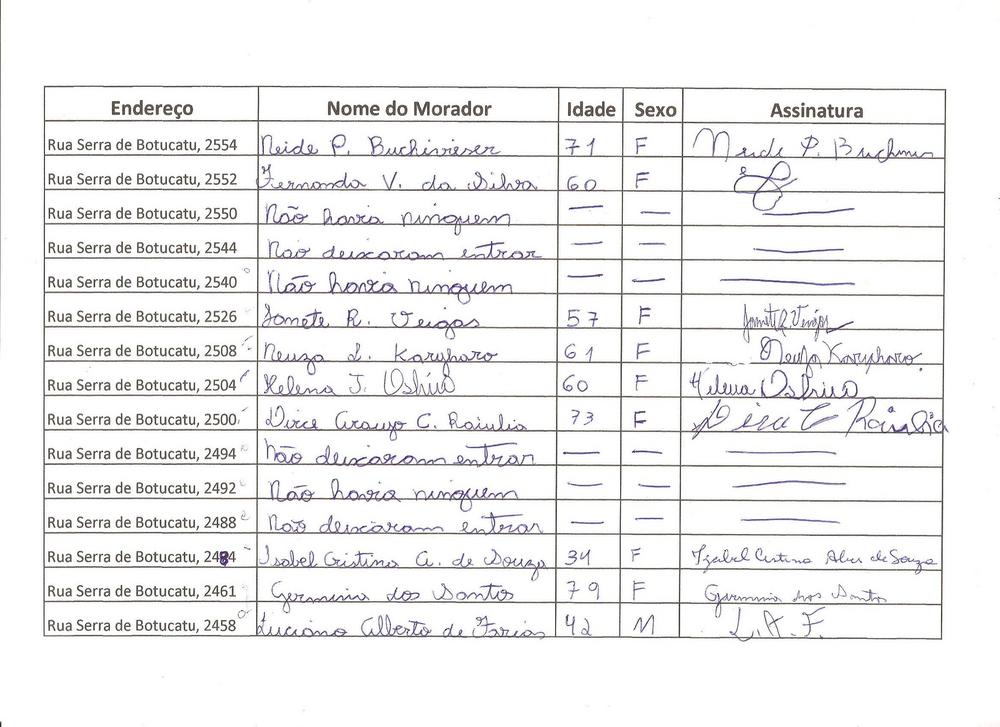 Endereço Nome do Morador Idade Sexo Assinatura
Rua Serra de Botucatu, 2554 Neide P. Buchivieser 71 F Neide P. Buchivieser
Rua Serra de Botucatu, 2552 Fernanda V. da Silva 60 F
Rua Serra de Botucatu, 2550 Não havia ninguem — — —
Rua Serra de Botucatu, 2544 Não deixaram entrar — — —
Rua Serra de Botucatu, 2540 Não havia ninguem — — —
Rua Serra de Botucatu, 2526 Ionete R. Veigas 57 F
Rua Serra de Botucatu, 2508 Neuza L. Karypharo 61 F Neuza Karypharo
Rua Serra de Botucatu, 2504 Helena J. Oshiro 60 F Helena Oshiro
Rua Serra de Botucatu, 2500 Dirce Araujo C. Rainha 73 F Dirce C Rainha
Rua Serra de Botucatu, 2494 Não deixaram entrar — — —
Rua Serra de Botucatu, 2492 Não havia ninguem — — —
Rua Serra de Botucatu, 2488 Não deixaram entrar — — —
Rua Serra de Botucatu, 2484 Isabel Cristina A. de Souza 34 F Izabel Cristina Alves de Souza
Rua Serra de Botucatu, 2461 Germinia dos Santos 79 F Germinia dos Santos
Rua Serra de Botucatu, 2458 Luciano Alberto de Farias 42 M L.A.F.